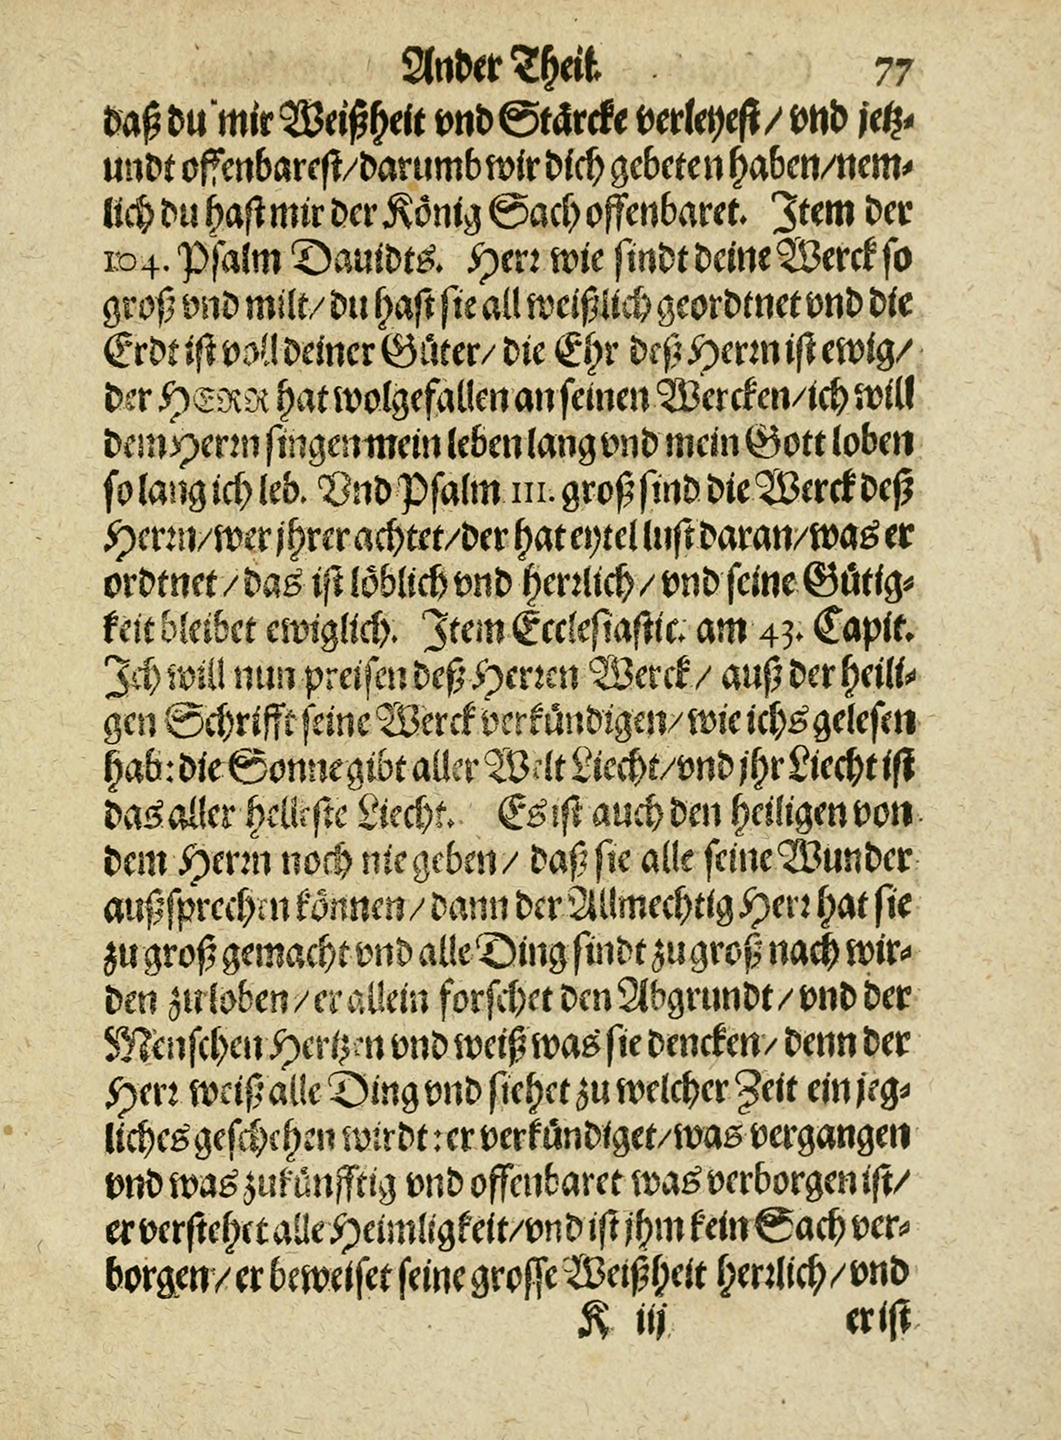 Ander Theil. 77
daß du mir Weißheit vnd Stärcke verleyest/ vnd jetz-
undt offenbarest/darumb wir dich gebeten haben/nem-
lich du hast mir der König Sach offenbaret. Item der
104. Psalm Dauidts. Herr wie sindt deine Werck so
groß vnd milt/ du hast sie all weißlich geordtnet vnd die
Erdt ist voll deiner Güter/ die Ehr deß Herrn ist ewig/
der HERR hat wolgefallen an seinen Wercken/ich will
dem Herrn singen mein leben lang vnd mein Gott loben
so lang ich leb. Vnd Psalm 111. groß sind die Werck deß
Herrn/wer jhrer achtet/der hat eytel lust daran/was er
ordtnet/das ist löblich vnd herrlich/ vnd seine Gütig-
keit bleibet ewiglich. Item Ecclesiastic. am 43. Capit.
Ich will nun preisen deß Herren Werck/ auß der heili-
gen Schrifft seine Werck verkündigen/wie ichs gelesen
hab: die Sonne gibt aller Welt Liecht/vnd jhr Liecht ist
das aller helleste Liecht. Es ist auch den heiligen von
dem Herrn noch nie geben/ daß sie alle seine Wunder
außsprechen können/dann der Allmechtig Herr hat sie
zu groß gemacht vnd alle Ding sindt zu groß nach wir-
den zu loben/er allein forschet den Abgrundt/ vnd der
Menschen Hertzen vnd weiß was sie dencken/ denn der
Herr weiß alle Ding vnd siehet zu welcher Zeit ein jeg-
liches geschehen wirdt: er verkündiget/was vergangen
vnd was zukünfftig vnd offenbaret was verborgen ist/
er verstehet alle Heimligkeit/vnd ist jhm kein Sach ver-
borgen/ er beweiset seine grosse Weißheit herrlich/ vnd
K iij er ist